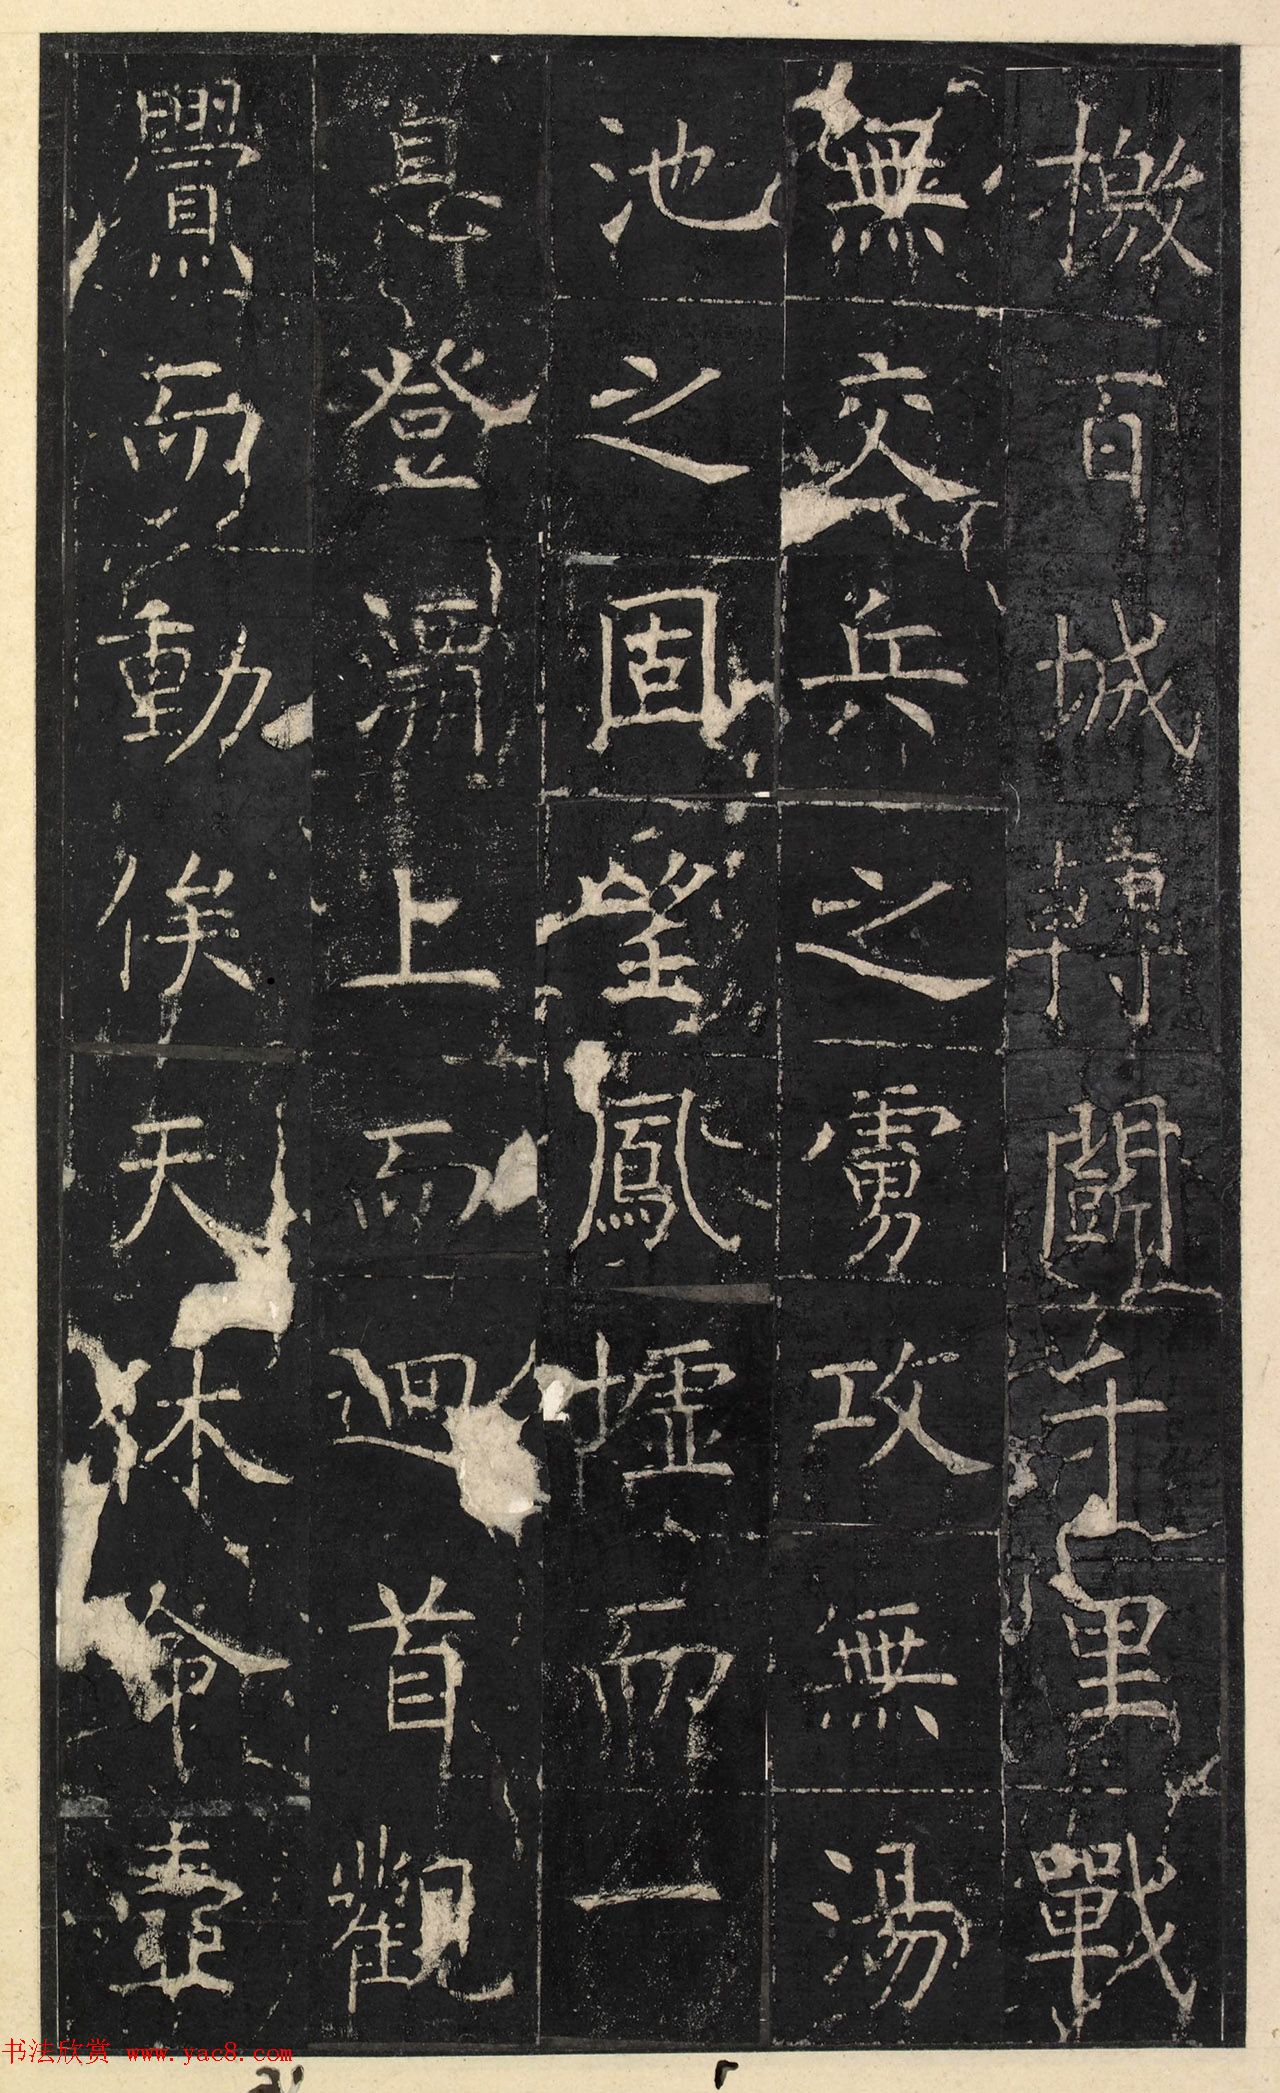 檄百城轉鬭千里戰
無交兵之虜攻無湯
池之固望鳳墟而一
息登灞上而迴首觀
釁而動俟天休命壹
书法欣赏 www.yac8.com